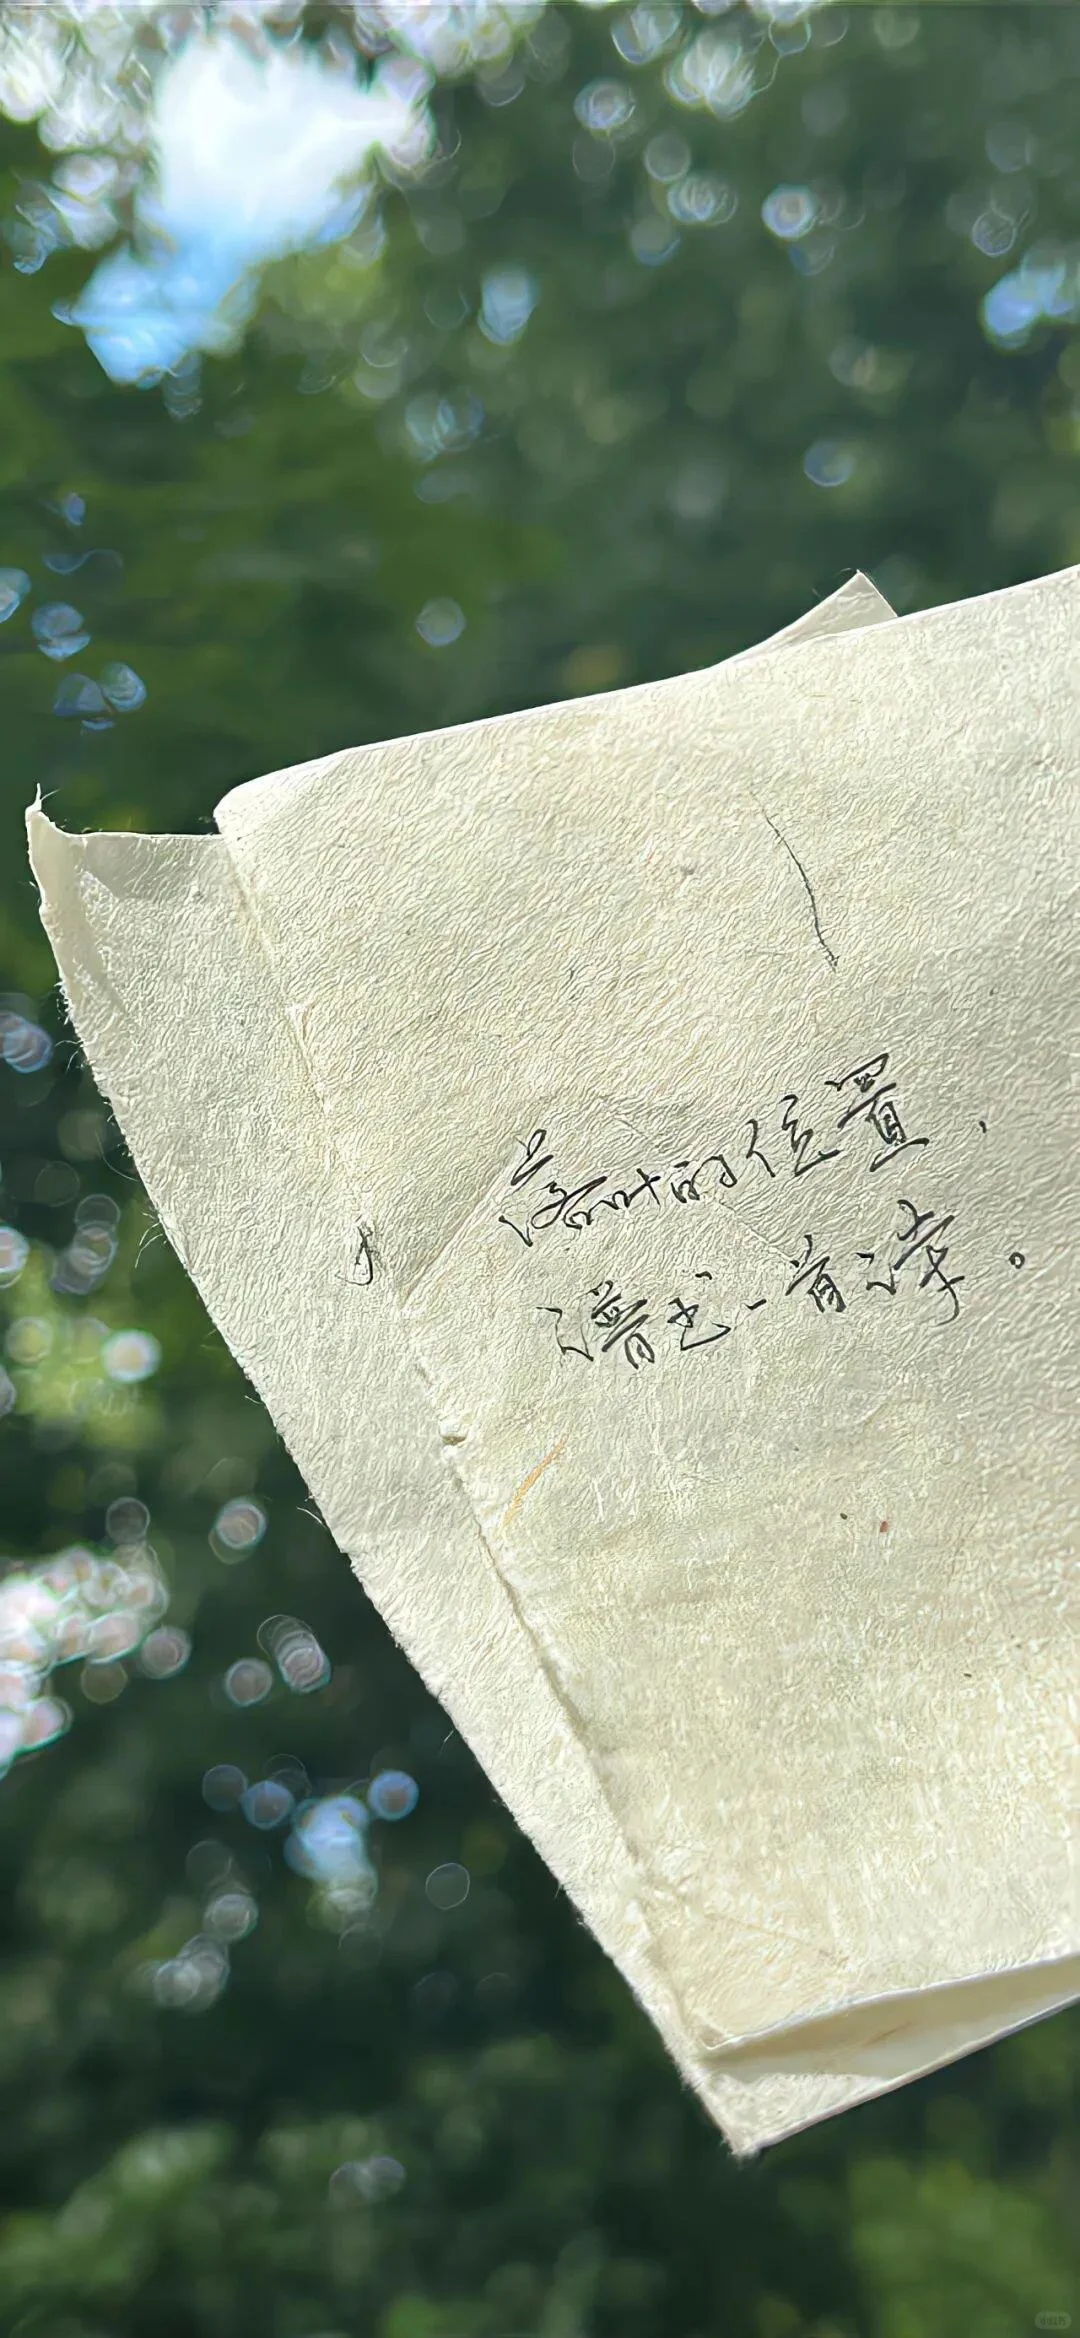 落叶的位置，
谱出一首诗。